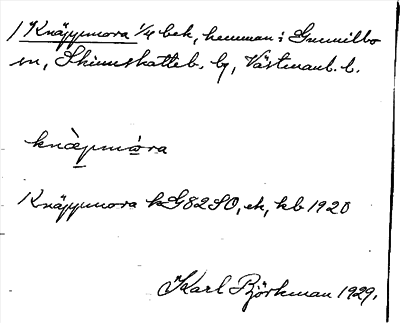 1 Knäppmora 1/4 bek, hemman i Gunnilbo
sn, Skinnskatteb. bg, Västmanl. l.
knæ̀pmóra
Knäppmora kG82SO, ek, kb 1920
Karl Björkman 1929.